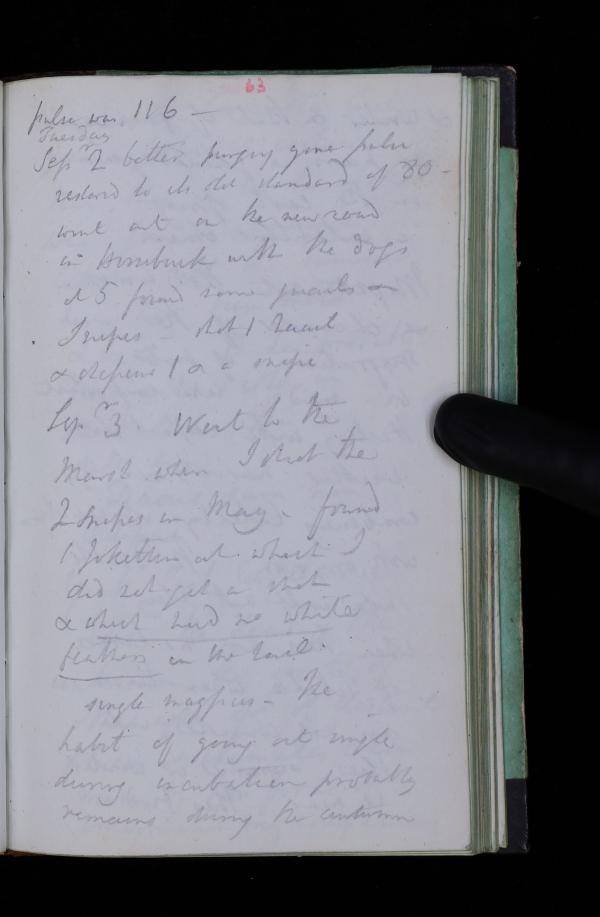 63
pulse was 116 —
Tuesday
Sepr 2 better purging gone pulse
restored to its old standard of 80 -
went out on the new road
in with the dogs
at 5 found some quails &
Snipes - shot 1 
& 1 & a snipe
Sepr 3. Went to the
Marsh where I shot the
2 Snipes in May - found
1 at which I
did not get a shot
& which had no white
feathers in the tail.
single magpies - the
habit of going out single
during incubation probably
remains during the autumn